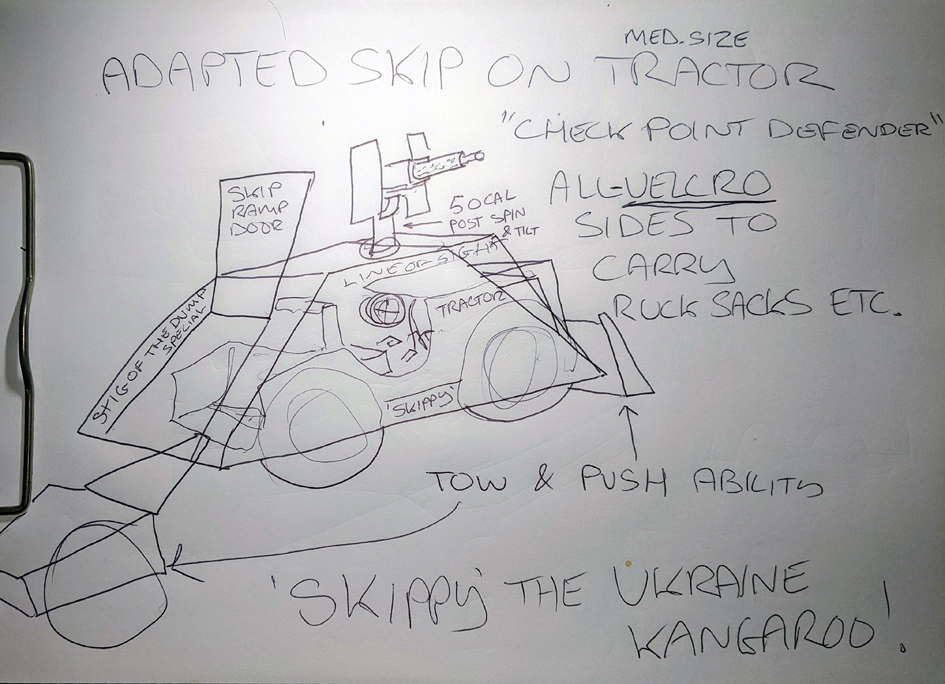 MED. SIZE
ADAPTED SKIP ON TRACTOR
"CHECK POINT DEFENDER"
SKIP
RAMP
DOOR
50CAL
POST SPIN
& TILT
ALL-VELCRO
SIDES TO
CARRY
RUCK SACKS ETC.
LINE OF SIGHT
TRACTOR
STIG OF THE DUMP
SPECIAL
'SKIPPY'
TOW & PUSH ABILITY
'SKIPPY' THE UKRAINE
KANGAROO'!